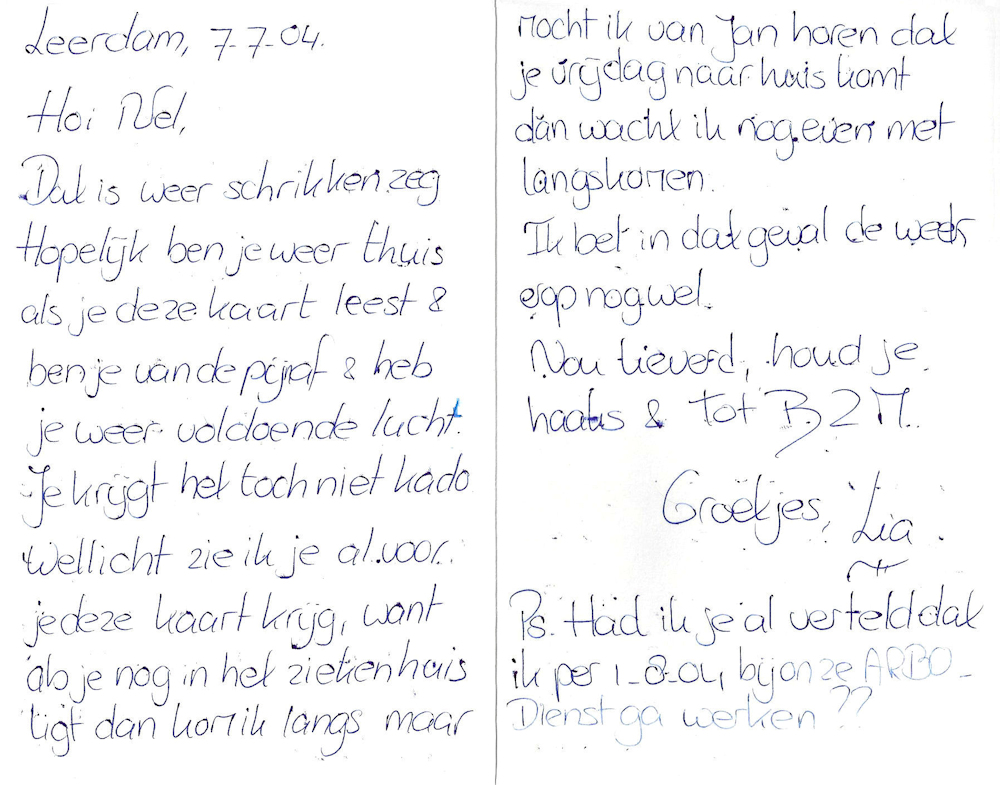 Leerdam, 7-7-04.
Hoi Nel,
Dat is weer schrikken zeg
Hopelijk ben je weer thuis
als je deze kaart leest &
ben je van de pijn af & heb
je weer voldoende lucht.
Je krijgt het toch niet kado
Wellicht zie ik je al voor
je deze kaart krijg, want
als je nog in het ziekenhuis
ligt dan kom ik langs maar
mocht ik van Jan horen dat
je vrijdag naar huis komt
dan wacht ik nog even met
langskomen.
Ik bel in dat geval de week
erop nog wel.
Nou lieverd, houd je
haaks & tot B2M.
Groetjes, Lia.
Ps. Had ik je al verteld dat
ik per 1-8-04, bij onze ARBO-
Dienst ga werken ??